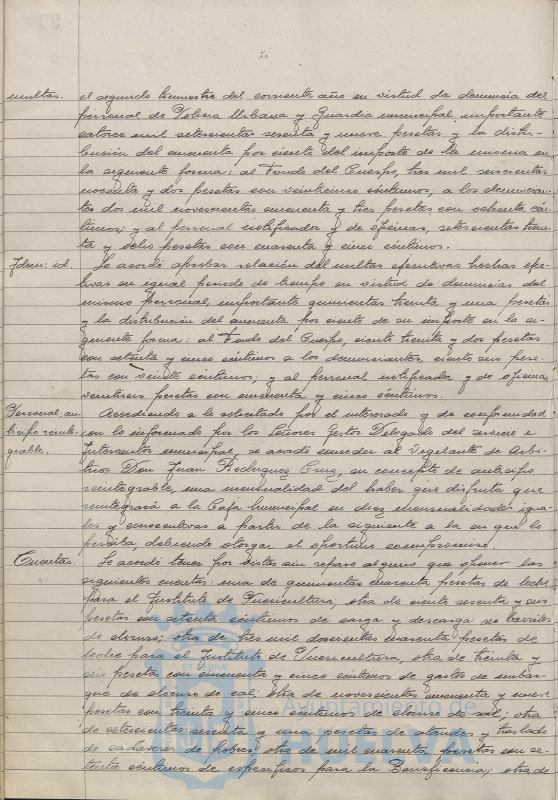 multas. el segundo trimestre del corriente año en virtud de denuncia del
personal de Policia Urbana y Guardia municipal, importante
catorce mil setecientas sesenta y nueve pesetas y la distri-
bución del cincuenta por ciento del importe de la misma en
la siguiente forma: al Fondo del Cuerpo, tres mil seiscientas
noventa y dos pesetas con veinticinco céntimos, a los denuncian-
tes dos mil novecientas cincuenta y tres pesetas con ochenta cén-
timos; y al personal notificador y de oficinas, setecientas trein-
ta y ocho pesetas con cuarenta y cinco céntimos.
Idem: id. Se acordó aprobar relación del multas ejecutivas hechas efec-
tivas en igual periodo de tiempo en virtud de denuncias del
mismo personal, importante quinientas treinta y una pesetas
y la distribución del cincuenta por ciento de su importe en la si-
guiente forma: al Fondo del Cuerpo, ciento treinta y dos pesetas
con setenta y cinco céntimos a los denunciantes, ciento seis pese-
tas con veinte céntimos; y al personal notificador y de oficina
veintiseis pesetas con cincuenta y cinco céntimos.
Personal: an- Accediendo a lo solicitado por el interesado y de conformidad
ticipo reinte- con lo informado por los Señores Gestor Delegado del servicio e
grable. Interventor municipal, se acordó conceder al Vigilante de Arbi-
trios Don Juan Rodriguez Cruz, en concepto de anticipo
reintegrable, una mensualidad del haber que disfruta que
reintegrará a la Caja Municipal en diez mensualidades igua-
les y consecutivas a partir de la siguiente a la en que lo
perciba, debiendo otorgar el oportuno compromiso.
Cuentas. Se acordó tener por vistas sin reparo alguno que oponer las
siguientes cuentas: una de quinientas cuarenta pesetas de leche
para el Instituto de Puericultura; otra de ciento sesenta y seis
pesetas con setenta céntimos de carga y descarga de barriles
de cloruro; otra de tres mil doscientas cuarenta pesetas de
leche para el Instituto de Puericultura, otra de treinta y
seis pesetas con cincuenta y cinco céntimos de gastos de embar-
que de cloruro de cal; otra de novecientas cincuenta y nueve
pesetas con treinta y cinco céntimos de cloruro de cal, otra
de setecientas sesenta y una pesetas de ataudes y traslado
de cadáveres de pobres; otra de mil cuarenta pesetas con se-
tenta céntimos de específicos para la Beneficencia; otra de
Ayuntamiento de
HUELVA